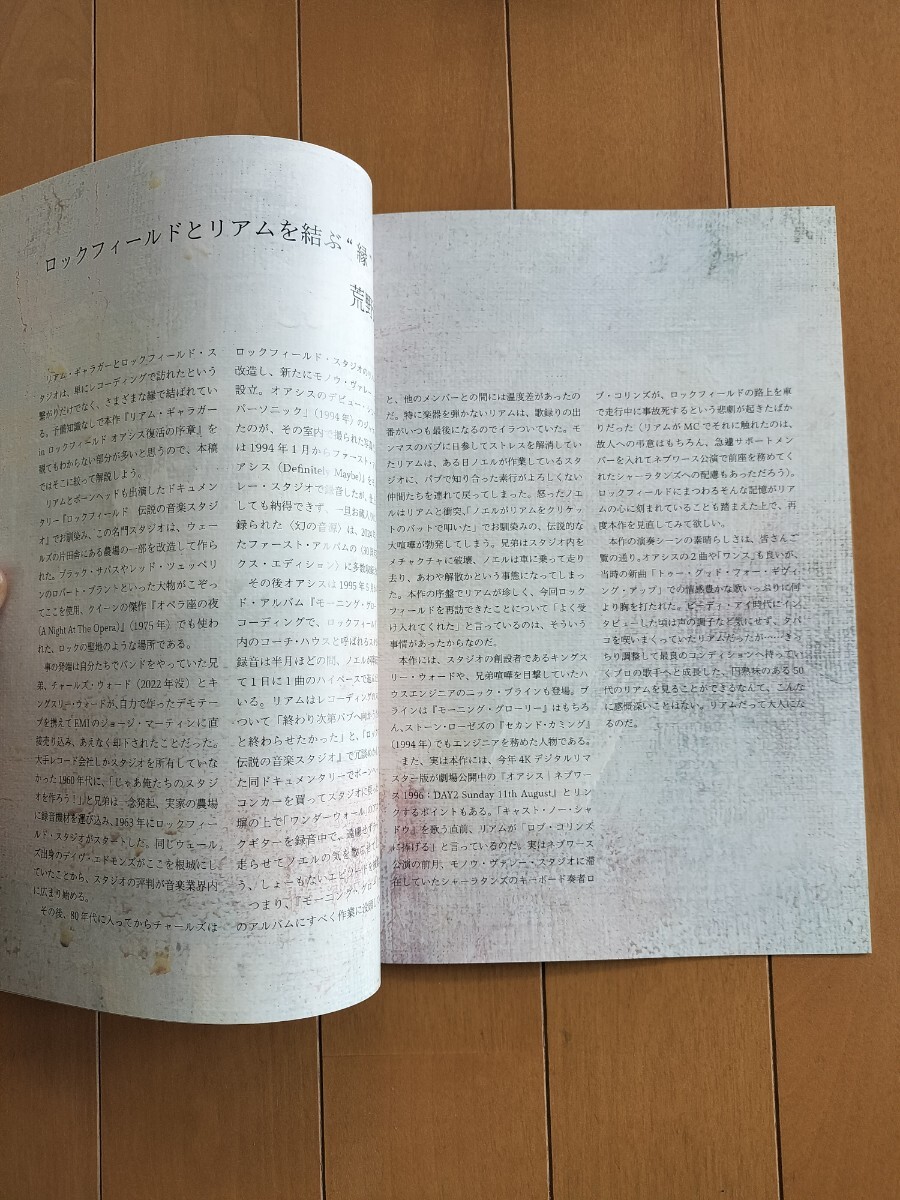 ロックフィールドとリアムを結ぶ“縁”
荒野
リアム・ギャラガーとロックフィールド・ス
タジオは、単にレコーディングで訪れたという
繋がりだけでなく、さまざまな縁で結ばれてい
る。予備知識なしで本作『リアム・ギャラガー
in ロックフィールド オアシス復活の序章』を
観てもわからない部分が多いと思うので、本稿
ではそこに絞って解説しよう。
リアムとボーンヘッドも出演したドキュメン
タリー『ロックフィールド 伝説の音楽スタジ
オ』でお馴染み、この名門スタジオは、ウェー
ルズの片田舎にある農場の一部を改造して作ら
れた。ブラック・サバスやレッド・ツェッペリ
ンのロバート・プラントといった大物がこぞっ
てここを使用、クイーンの傑作『オペラ座の夜
(A Night At The Opera)』(1975年)でも使わ
れた、ロックの聖地のような場所である。
事の発端は自分たちでバンドをやっていた兄
弟、チャールズ・ウォード(2022年没)とキ
ングスリー・ウォードが、自力で作ったデモテー
プを携えてEMIのジョージ・マーティンに直
接売り込み、あえなく却下されたことだった。
大手レコード会社しかスタジオを所有していな
かった1960年代に、「じゃあ俺たちのスタジ
オを作ろう！」と兄弟は一念発起、実家の農場
に録音機材を運び込み、1963年にロックフィー
ルド・スタジオがスタートした。同じウェール
ズ出身のデイヴ・エドモンズがここを根城にし
ていたことから、スタジオの評判が音楽業界内
に広まり始める。
その後、80年代に入ってからチャールズは
ロックフィールド・スタジオの
改造し、新たにモノウ・ヴァレー
設立。オアシスのデビュー・シン
パーソニック」(1994年)のジャ
たのが、その室内で撮られた写真
は1994年1月からファースト・
アシス(Definitely Maybe)』を
レー・スタジオで録音したが、
しても納得できず、一旦お蔵入り
録られた〈幻の音源〉は、2024
たファースト・アルバムの〈30周
クス・エディション〉に多数
その後オアシスは1995年5月
ド・アルバム『モーニング・グロー
コーディングで、ロックフィール
内のコーチ・ハウスと呼ばれるス
録音は半月ほどの間、ノエルの
て1日に1曲のハイペースで進
いる。リアムはレコーディング
ついて「終わり次第パブへ向
と終わらせたかった」と、『ロッ
伝説の音楽スタジオ』で冗談め
た同ドキュメンタリーでボーンヘ
コンカーを買ってスタジオに
塀の上で「ワンダーウォール」の
クギターを録音中で、遠慮せず
走らせてノエルの気を散らせて
う、しょーもないエピソードも
つまり、『モーニング・グロー
のアルバムにすべく作業に没頭
と、他のメンバーとの間には温度差があったの
だ。特に楽器を弾かないリアムは、歌録りの出
番がいつも最後になるのでイラついていた。モ
ンマスのパブに日参してストレスを解消してい
たリアムは、ある日ノエルが作業しているスタ
ジオに、パブで知り合った素行がよろしくない
仲間たちを連れて戻ってしまった。怒ったノエ
ルはリアムと衝突、「ノエルがリアムをクリケッ
トのバットで叩いた」でお馴染みの、伝説的な
大喧嘩が勃発してしまう。兄弟はスタジオ内を
メチャクチャに破壊、ノエルは車に乗って走り
去り、あわや解散かという事態になってしまっ
た。本作の序盤でリアムが珍しく、今回ロック
フィールドを再訪できたことについて「よく受
け入れてくれた」と言っているのは、そういう
事情があったからなのだ。
本作には、スタジオの創設者であるキングス
リー・ウォードや、兄弟喧嘩を目撃していたハ
ウスエンジニアのニック・ブラインも登場。ブ
ラインは『モーニング・グローリー』はもちろ
ん、ストーン・ローゼズの『セカンド・カミング』
(1994年)でもエンジニアを務めた人物である。
また、実は本作には、今年4Kデジタルリマ
スター版が劇場公開中の「オアシス｜ネブワー
ス1996：DAY2 Sunday 11th August」とリン
クするポイントもある。「キャスト・ノー・シャ
ドウ」を歌う直前、リアムが「ロブ・コリンズ
に捧げる」と言っているのだ。実はネブワース
公演の前月、モノウ・ヴァレー・スタジオに滞
在していたシャーラタンズのキーボード奏者ロ
ブ・コリンズが、ロックフィールドの路上を車
で走行中に事故死するという悲劇が起きたばか
りだった(リアムがMCでそれに触れたのは、
故人への弔意はもちろん、急遽サポートメン
バーを入れてネブワース公演で前座を務めてく
れたシャーラタンズへの配慮もあっただろう)。
ロックフィールドにまつわるそんな記憶がリア
ムの心に刻まれていることも踏まえた上で、再
度本作を見直してみて欲しい。
本作の演奏シーンの素晴らしさは、皆さんご
覧の通り。オアシスの2曲や「ワンス」も良いが、
当時の新曲「トゥー・グッド・フォー・ギヴィ
ング・アップ」での情感豊かな歌いっぷりに何
より胸を打たれた。ビーディ・アイ時代にイン
タビューした頃は声の調子など気にせず、タバ
コを喫いまくっていたリアムだったが……きっ
ちり調整して最良のコンディションへ持ってい
くプロの歌手へと成長した、円熟味のある50
代のリアムを見ることができるなんて、こんな
に感慨深いことはない。リアムだって大人にな
るのだ。